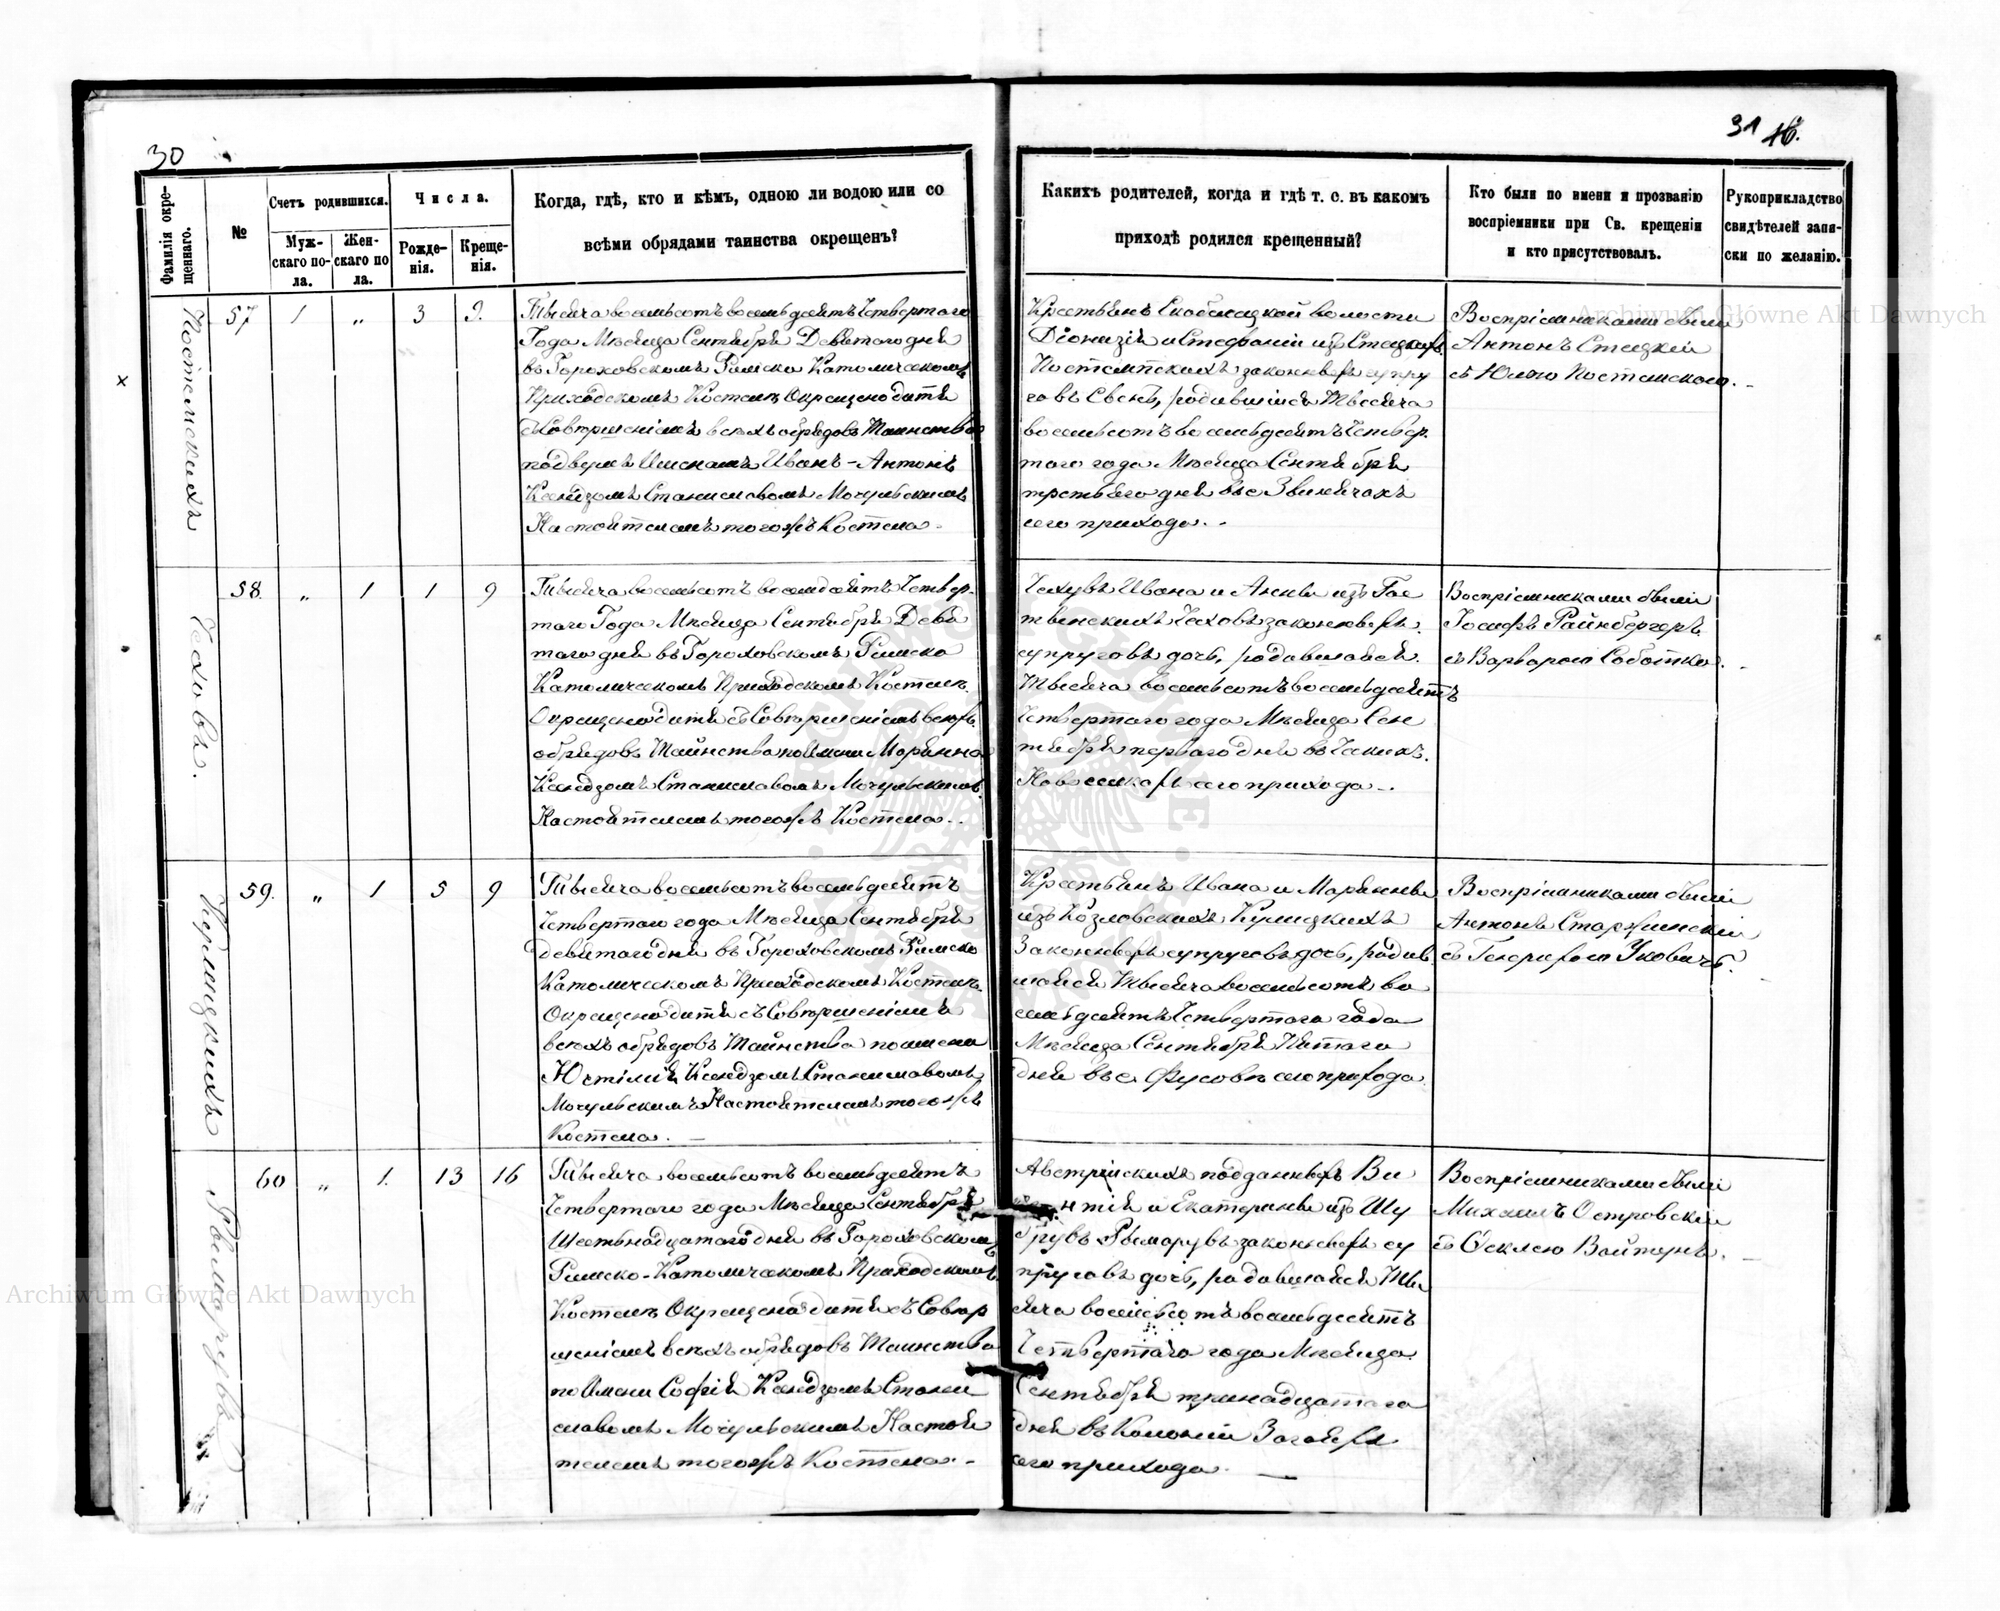 30
31 16.
Фамилія окре-
щеннаго.
№
Счетъ родившихся.
Муж-
скаго по-
ла.
Жен-
скаго по
ла.
Числа.
Рожде-
нія.
Креще-
нія.
Когда, гдѣ, кто и кѣмъ, одною ли водою или со
всѣми обрядами таинства окрещенъ?
Какихъ родителей, когда и гдѣ т. е. въ какомъ
приходѣ родился крещенный?
Кто были по имени и прозванію
воспріемники при Св. крещеніи
и кто присутствовалъ.
Рукоприкладство
свидѣтелей запи-
ски по желанію.
57 1 „ 3 9.
Тысяча восемьсотъ восемьдесятъ Четвертаго
Года Мѣсяца Сентября Девятаго дня
въ Гороховскомъ Римско Католическомъ
Приходскомъ Костелѣ Окрещено дитя
съ Совершеніемъ всѣхъ обрядовъ Таинства
подъ Именамъ Иванъ-Антонъ
Ксендзомъ Станиславомъ Мочульскимъ
Настоятелемъ того жъ Костела.
Крестьянъ волости
Діонизія и Стефаніи изъ
законныхъ супру
говъ Сынъ, родившійся Тысяча
восемьсотъ восемьдесятъ Четвер.
таго года Мѣсяца Сентября
третьяго дня въ с Звинячахъ
сего прихода.
Воспріемниками были
Антонъ Стецкій
съ Юліею
58. „ 1 1 9
Чеховъ.
Тысяча восемьсотъ восемдсятъ Четвер-
таго Года Мѣсяца Сентября Девя
таго дня въ Гороховскомъ Римско
Католическомъ Приходскомъ Костелѣ
Окрещено дитя съ Совершеніемъ всѣхъ
обрядовъ Таинства по Имени Марянна
Ксендзомъ Станиславомъ Мочульскимъ
Настоятелемъ того жъ Костела.
Чеховъ Ивана и Анны изъ
Чеховъ законныхъ
супруговъ дочь, родившаяся
Тысяча восемьсотъ восемьдесятъ
Четвертаго года Мѣсяца Сен
тября перваго дня въ
сего прихода.
Воспріемниками были
Іосифъ Райнбергеръ
съ Варварою Соботко.
59. „ 1 5 9
Тысяча восемьсотъ восемьдесятъ
Четвертаго года Мѣсяца Сентября
девятаго дня въ Гороховскомъ Римско
Католическомъ Приходскомъ Костелѣ
Окрещено дитя съ Совершеніемъ
всѣхъ обрядовъ Таинства по имени
Ксендзомъ Станиславомъ
Мочульскимъ Настоятелемъ того жъ
Костела.
Крестьянъ Ивана и Марянны
изъ Козловскихъ
Законныхъ супруговъ дочь, родив.
шаяся Тысяча восемьсотъ во
семьдесятъ Четвертаго года
Мѣсяца Сентября Пятаго
дня въ с. сего прихода
Воспріемниками были
Антонъ
съ
60 „ 1. 13 16
Рымарувъ
Тысяча восемьсотъ восемьдесятъ
Четвертаго года Мѣсяца Сентября
Шестьнадцатаго дня въ Гороховскомъ
Римско-Католическомъ Приходскомъ
Костелѣ Окрещено дитя съ Совер
шеніемъ всѣхъ обрядовъ Таинства
по Имени Софія Ксендзомъ Стани
славомъ Мочульскимъ Настоя
телемъ того жъ Костела.
Австрійскихъ подданныхъ Ви
нтія и Екатерины изъ Шу
Рымарувъ законныхъ су
пруговъ дочь, родившаяся Ты
сяча восемьсотъ восемьдесятъ
Четвертаго года Мѣсяца
Сентября тринадцатаго
дня въ Колоніи
сего прихода.
Воспріемниками были
Михаилъ Островскій
съ
Archiwum Główne Akt Dawnych
Archiwum Główne Akt Dawnych